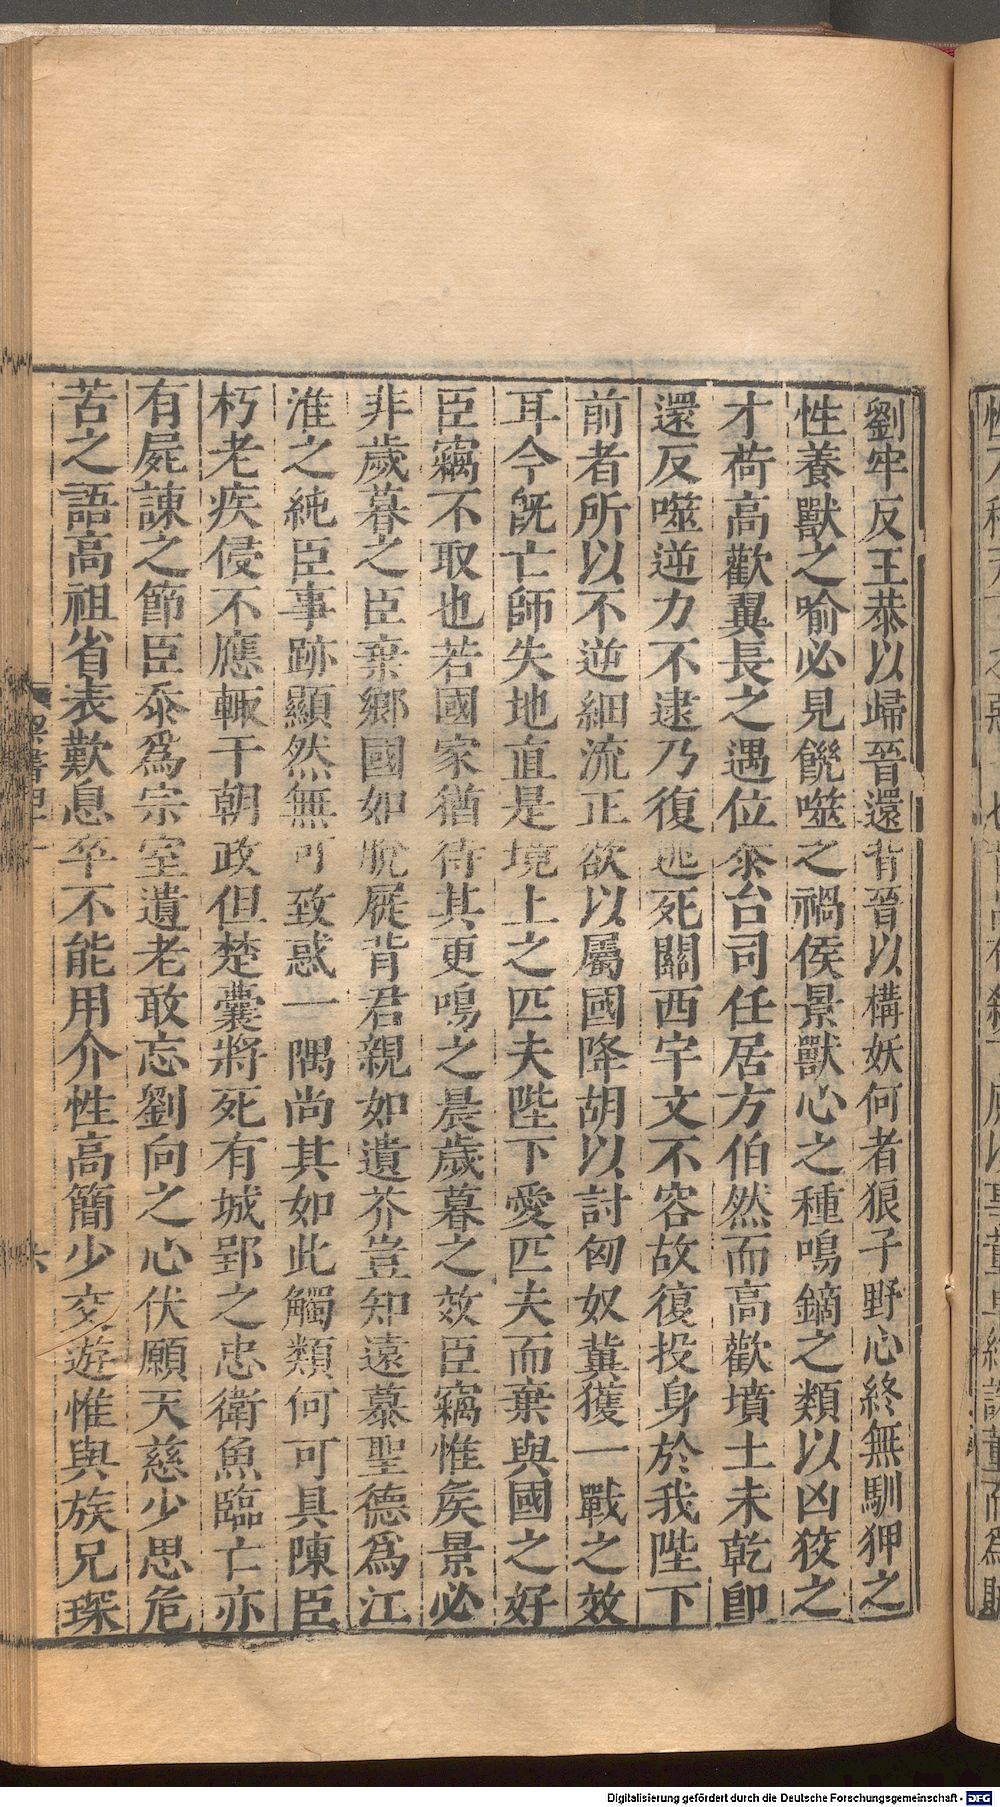 劉牢反王恭以歸晉還背晉以構妖何者狼子野心終無馴狎之
性養獸之喻必見饑噬之禍侯景獸心之種鳴鏑之類以凶狡之
才荷高歡翼長之遇位忝台司任居方伯然而高歡墳土未乾即
還反噬逆力不逮乃復逃死關西宇文不容故復投身於我陛下
前者所以不逆細流正欲以屬國降胡以討匈奴冀獲一戰之效
耳今旣亡師失地直是境上之匹夫陛下愛匹夫而棄與國之好
臣竊不取也若國家猶待其更鳴之晨歲暮之效臣竊惟矦景必
非歲暮之臣棄鄉國如脫屣背君親如遺芥豈知遠慕聖德爲江
淮之純臣事跡顯然無可致惑一隅尚其如此觸類何可具陳臣
朽老疾侵不應輒干朝政但楚囊將死有城郢之忠衛魚臨亡亦
有屍諫之節臣忝爲宗室遺老敢忘劉向之心伏願天慈少思危
苦之語高祖省表歎息卒不能用介性高簡少交遊惟與族兄琛
Digitalisierung gefördert durch die Deutsche Forschungsgemeinschaft - DFG